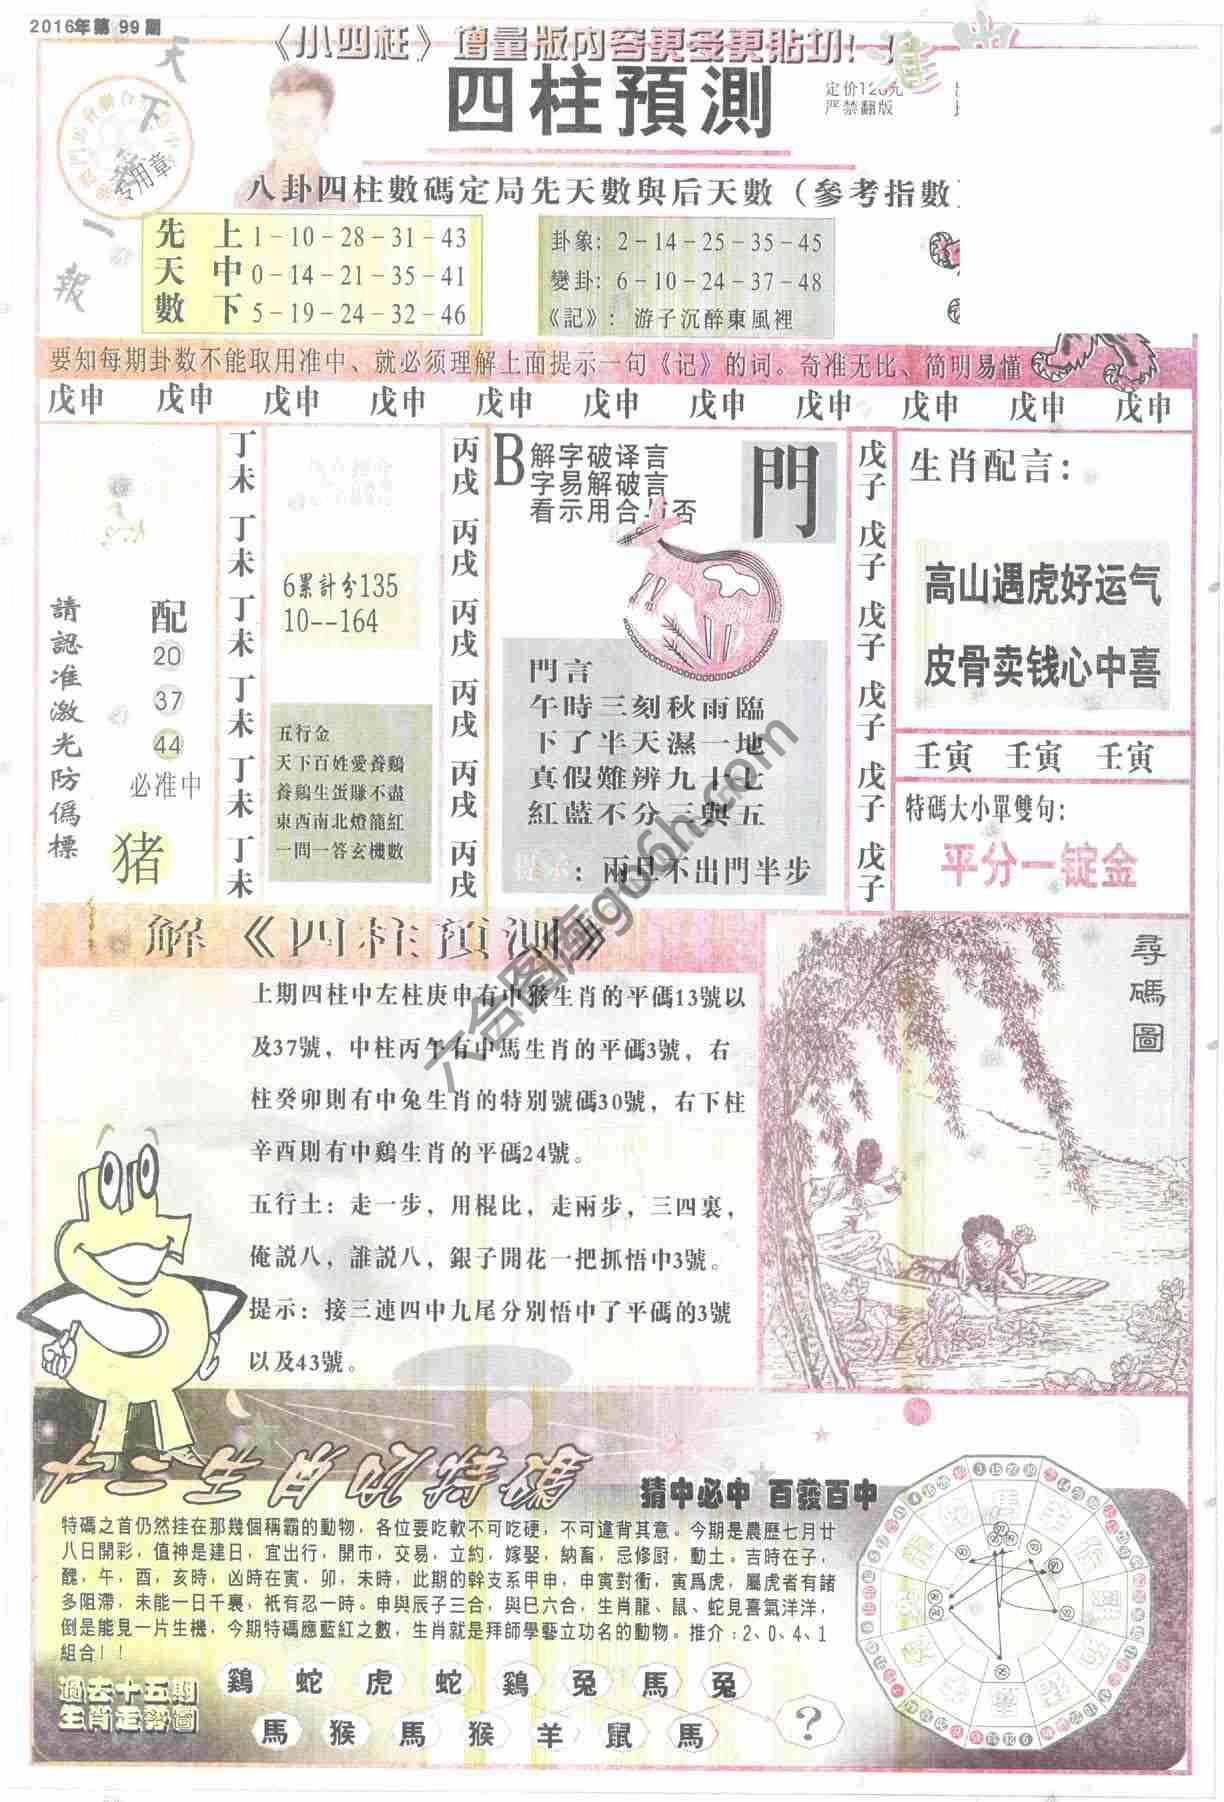 2016年第 99 期
《小四柱》增量版内容更多更貼切！！
四柱預測
定价120元
严禁翻版
天下第一報
专用章
八卦四柱數碼定局先天數與后天數（參考指數
先天數
上 1－10－28－31－43
中 0－14－21－35－41
下 5－19－24－32－46
卦象: 2－14－25－35－45
變卦: 6－10－24－37－48
《記》: 游子沉醉東風裡
要知每期卦数不能取用准中、就必须理解上面提示一句《记》的词。奇准无比、简明易懂
戊申 戊申 戊申 戊申 戊申 戊申 戊申 戊申 戊申 戊申 戊申
請認准激光防僞標
配
20
37
44
必准中
猪
丁未 丁未 丁未 丁未 丁未 丁未
6累計分135
10--164
五行金
天下百姓愛養鷄
養鷄生蛋賺不盡
東西南北燈籠紅
一問一答玄機數
丙戌 丙戌 丙戌 丙戌 丙戌 丙戌
B
解字破译言
字易解破言
看示用合与否
門
門言
午時三刻秋雨臨
下了半天濕一地
真假難辨九十七
紅藍不分三與五
提示：兩旦不出門半步
戊子 戊子 戊子 戊子 戊子 戊子
生肖配言：
高山遇虎好运气
皮骨卖钱心中喜
壬寅 壬寅 壬寅
特碼大小單雙句：
平分一锭金
解《四柱預測》
上期四柱中左柱庚申有中猴生肖的平碼13號以
及37號，中柱丙午有中馬生肖的平碼3號，右
柱癸卯則有中兔生肖的特別號碼30號，右下柱
辛酉則有中鷄生肖的平碼24號。
五行土：走一步，用棍比，走兩步，三四裏，
俺説八，誰説八，銀子開花一把抓悟中3號。
提示：接三連四中九尾分別悟中了平碼的3號
以及43號。
尋碼圖
猜中必中 百發百中
特碼之首仍然挂在那幾個稱霸的動物，各位要吃軟不可吃硬，不可違背其意。今期是農歷七月廿
八日開彩，值神是建日，宜出行，開市，交易，立約，嫁娶，納畜，忌修厨，動土。吉時在子，
醜，午，酉，亥時，凶時在寅，卯，未時，此期的幹支系甲申，申寅對衝，寅爲虎，屬虎者有諸
多阻滯，未能一日千裏，衹有忍一時。申與辰子三合，與巳六合，生肖龍、鼠、蛇見喜氣洋洋，
倒是能見一片生機，今期特碼應藍紅之數，生肖就是拜師學藝立功名的動物。推介：2、0、4、1
組合！！
過去十五期
生肖走勢圖
鷄 蛇 虎 蛇 鷄 兔 馬 兔
馬 猴 馬 猴 羊 鼠 馬 ？
六合图库go6h.com